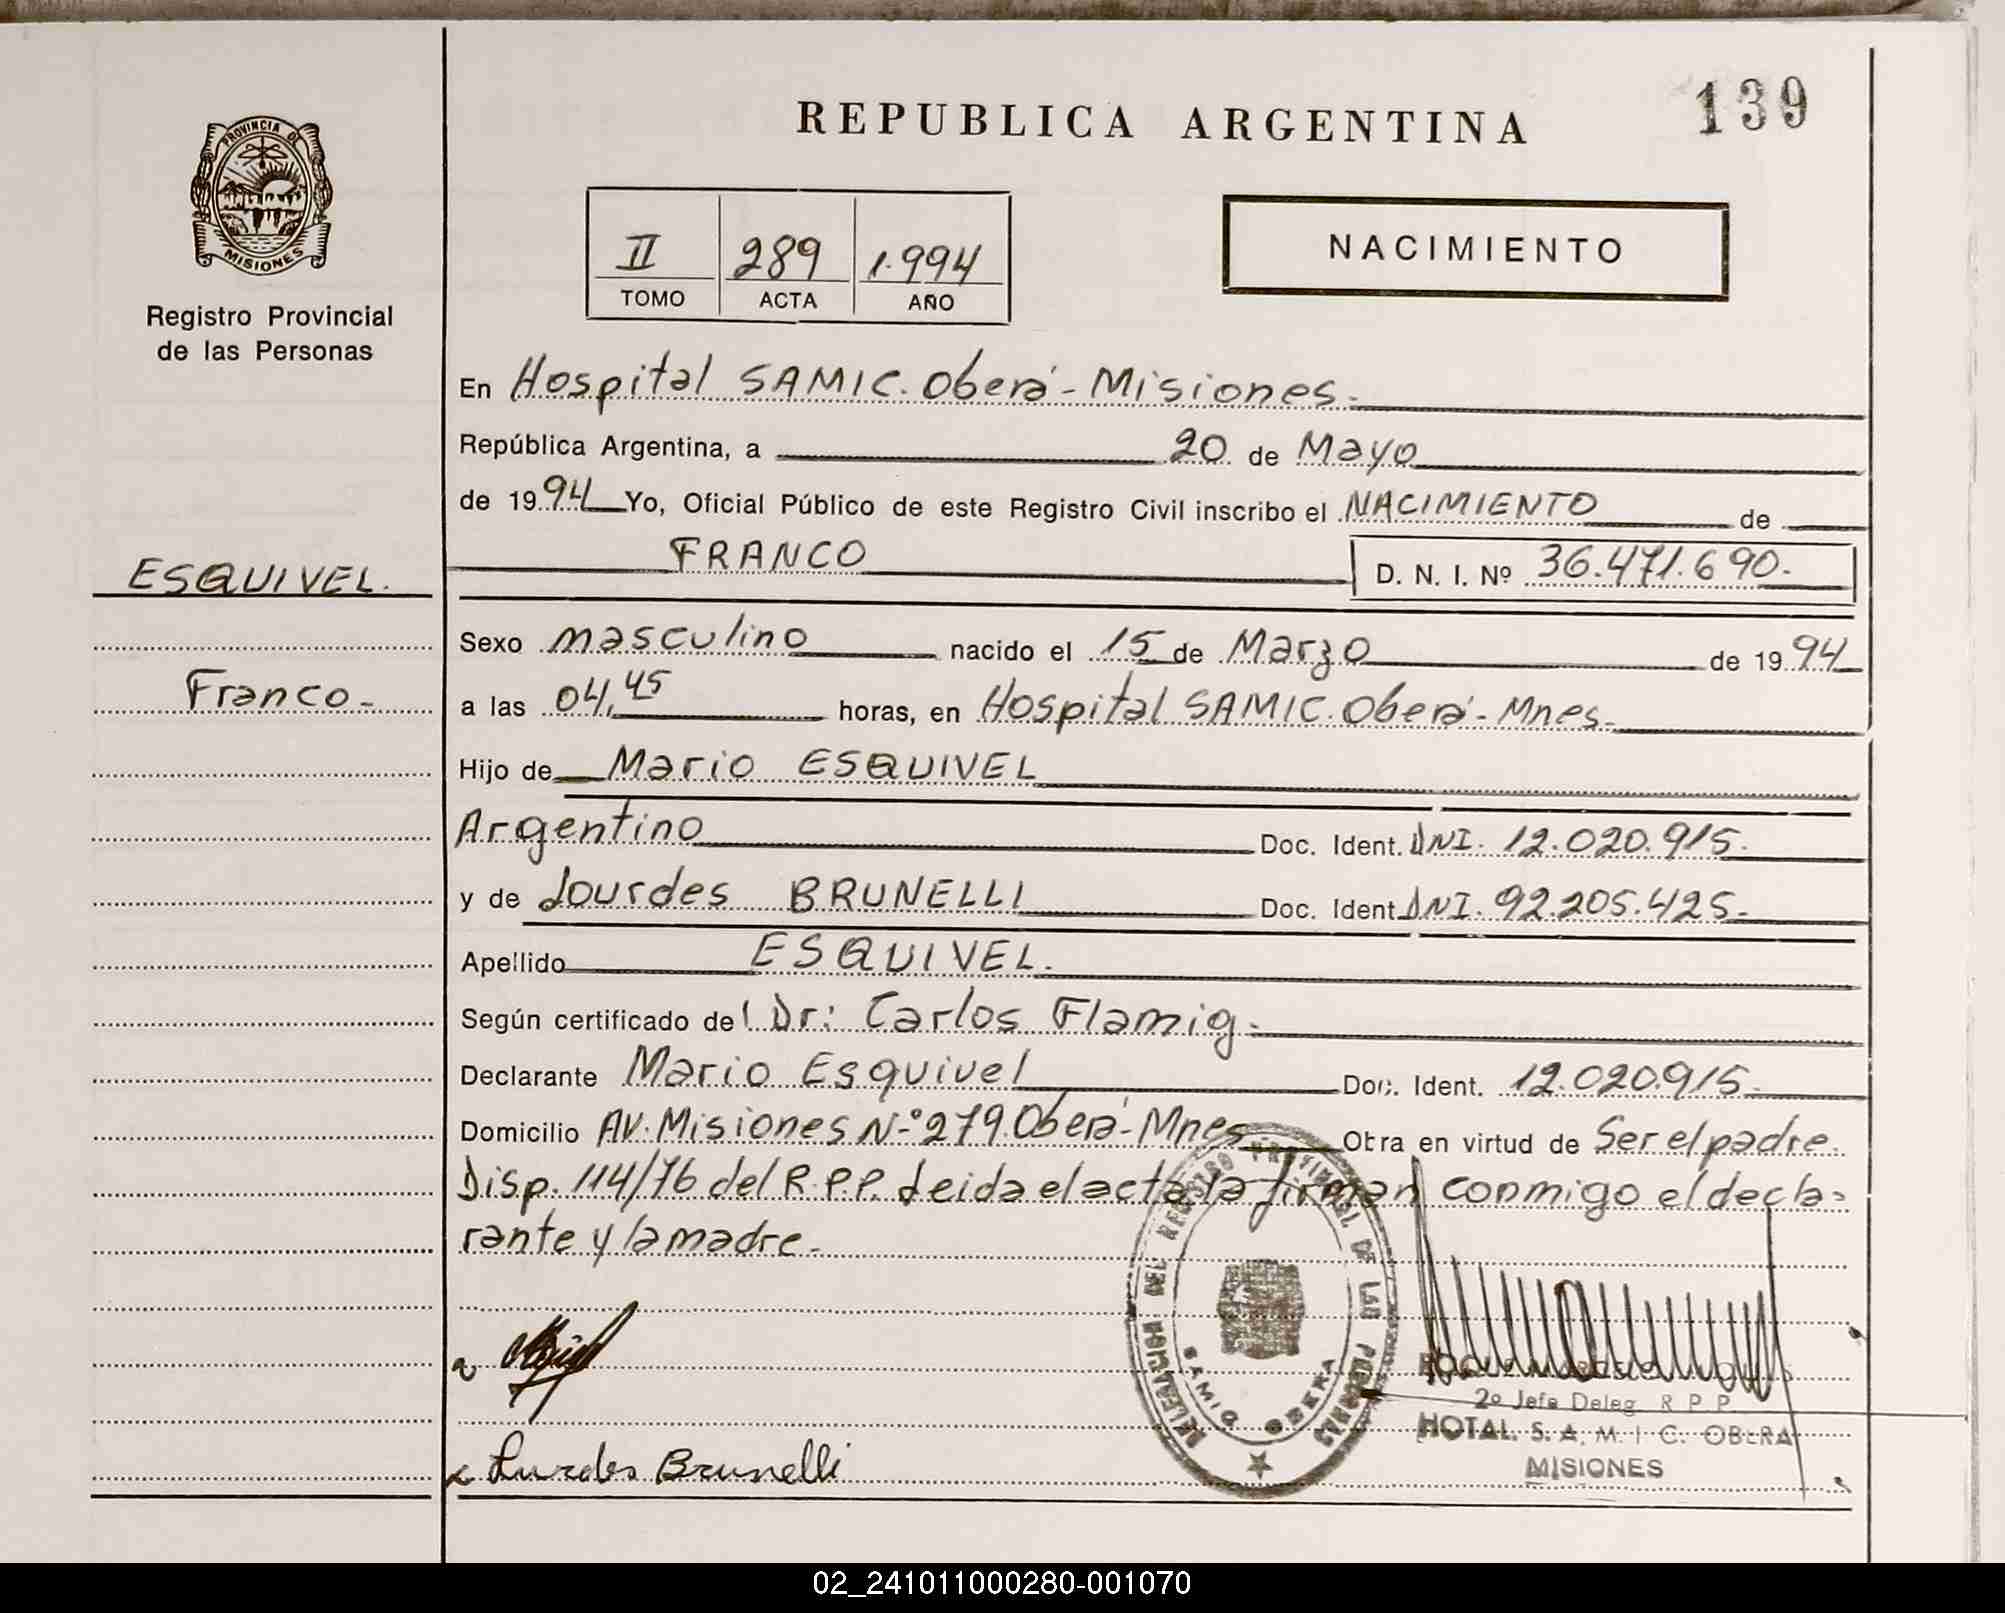 REPUBLICA ARGENTINA
139
PROVINCIA DE
MISIONES
Registro Provincial
de las Personas
II 289 1.994
TOMO ACTA AÑO
NACIMIENTO
En Hospital SAMIC. Oberá - Misiones.
República Argentina, a 20 de Mayo
de 1994 Yo, Oficial Público de este Registro Civil inscribo el NACIMIENTO de
FRANCO D. N. I. Nº 36.471.690.
ESQUIVEL.
Franco -
Sexo masculino nacido el 15 de Marzo de 1994
a las 04,45 horas, en Hospital SAMIC. Oberá - Mnes.
Hijo de Mario ESQUIVEL
Argentino Doc. Ident. DNI. 12.020.915.
y de Lourdes BRUNELLI Doc. Ident. DNI. 92.205.425.
Apellido ESQUIVEL.
Según certificado del Dr: Carlos Flamig.
Declarante Mario Esquivel Doc. Ident. 12.020.915.
Domicilio AV. Misiones N-º 279. Oberá - Mnes Obra en virtud de Ser el padre.
Disp. 114/76 del R.P.P. Leida el acta la firman conmigo el decla-
rante y la madre.
DEL REGISTRO PROVINCIAL DE LAS PERSONAS
SAMIC OBERA
2º Jefe Deleg. R P P
HOTAL. S. A. M. I C. OBERA
MISIONES
Lurdes Brunelli
02_241011000280-001070